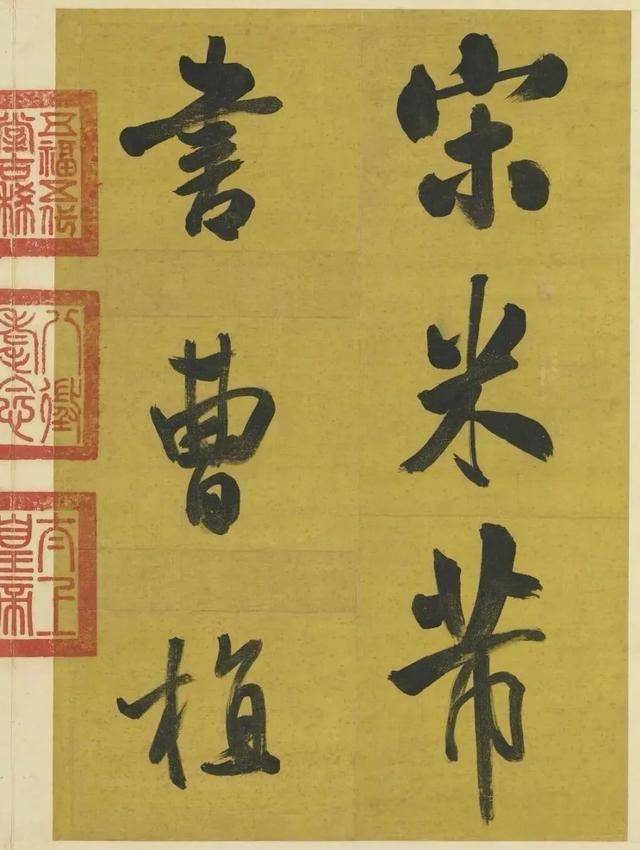 宋米芾
書曹植
五福五代
堂古稀
八徵
耄念
太上
皇帝